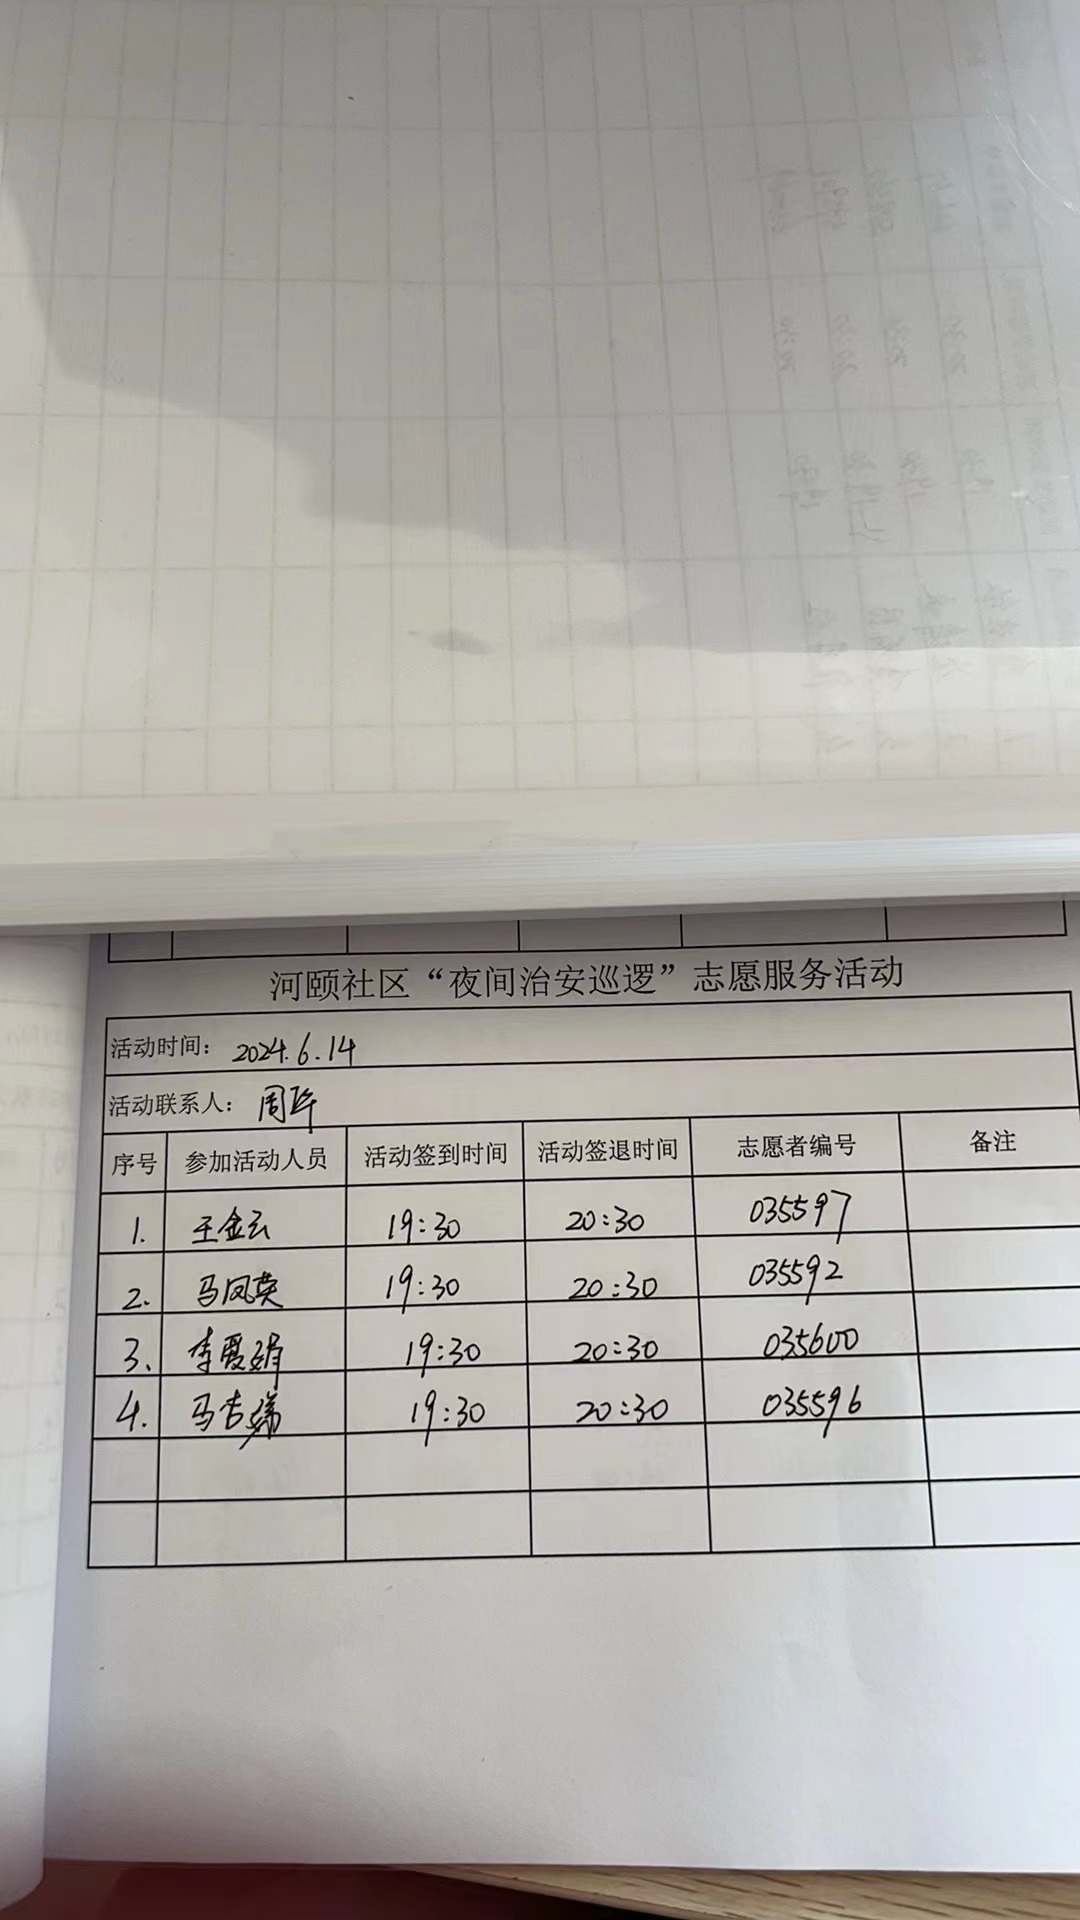 河颐社区“夜间治安巡逻”志愿服务活动
活动时间： 2024.6.14
活动联系人： 周
序号 参加活动人员 活动签到时间 活动签退时间 志愿者编号 备注
1. 王金云 19:30 20:30 035597
2. 马凤英 19:30 20:30 035592
3. 李爱娟 19:30 20:30 035600
4. 马杏 19:30 20:30 035596